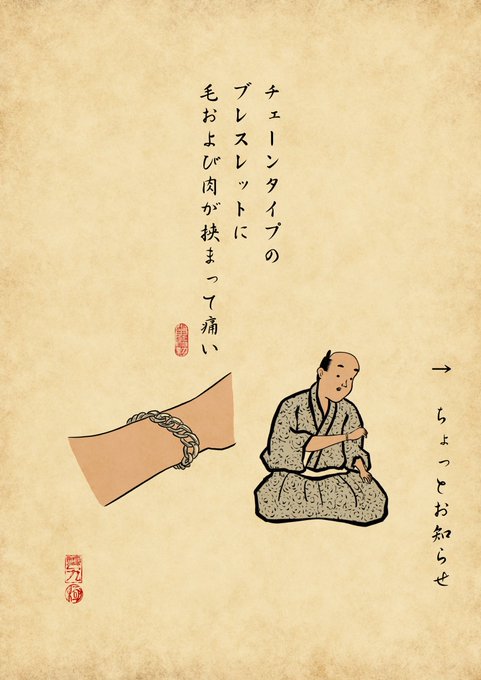 チェーンタイプの
ブレスレットに
毛および肉が挟まって痛い
→ ちょっとお知らせ